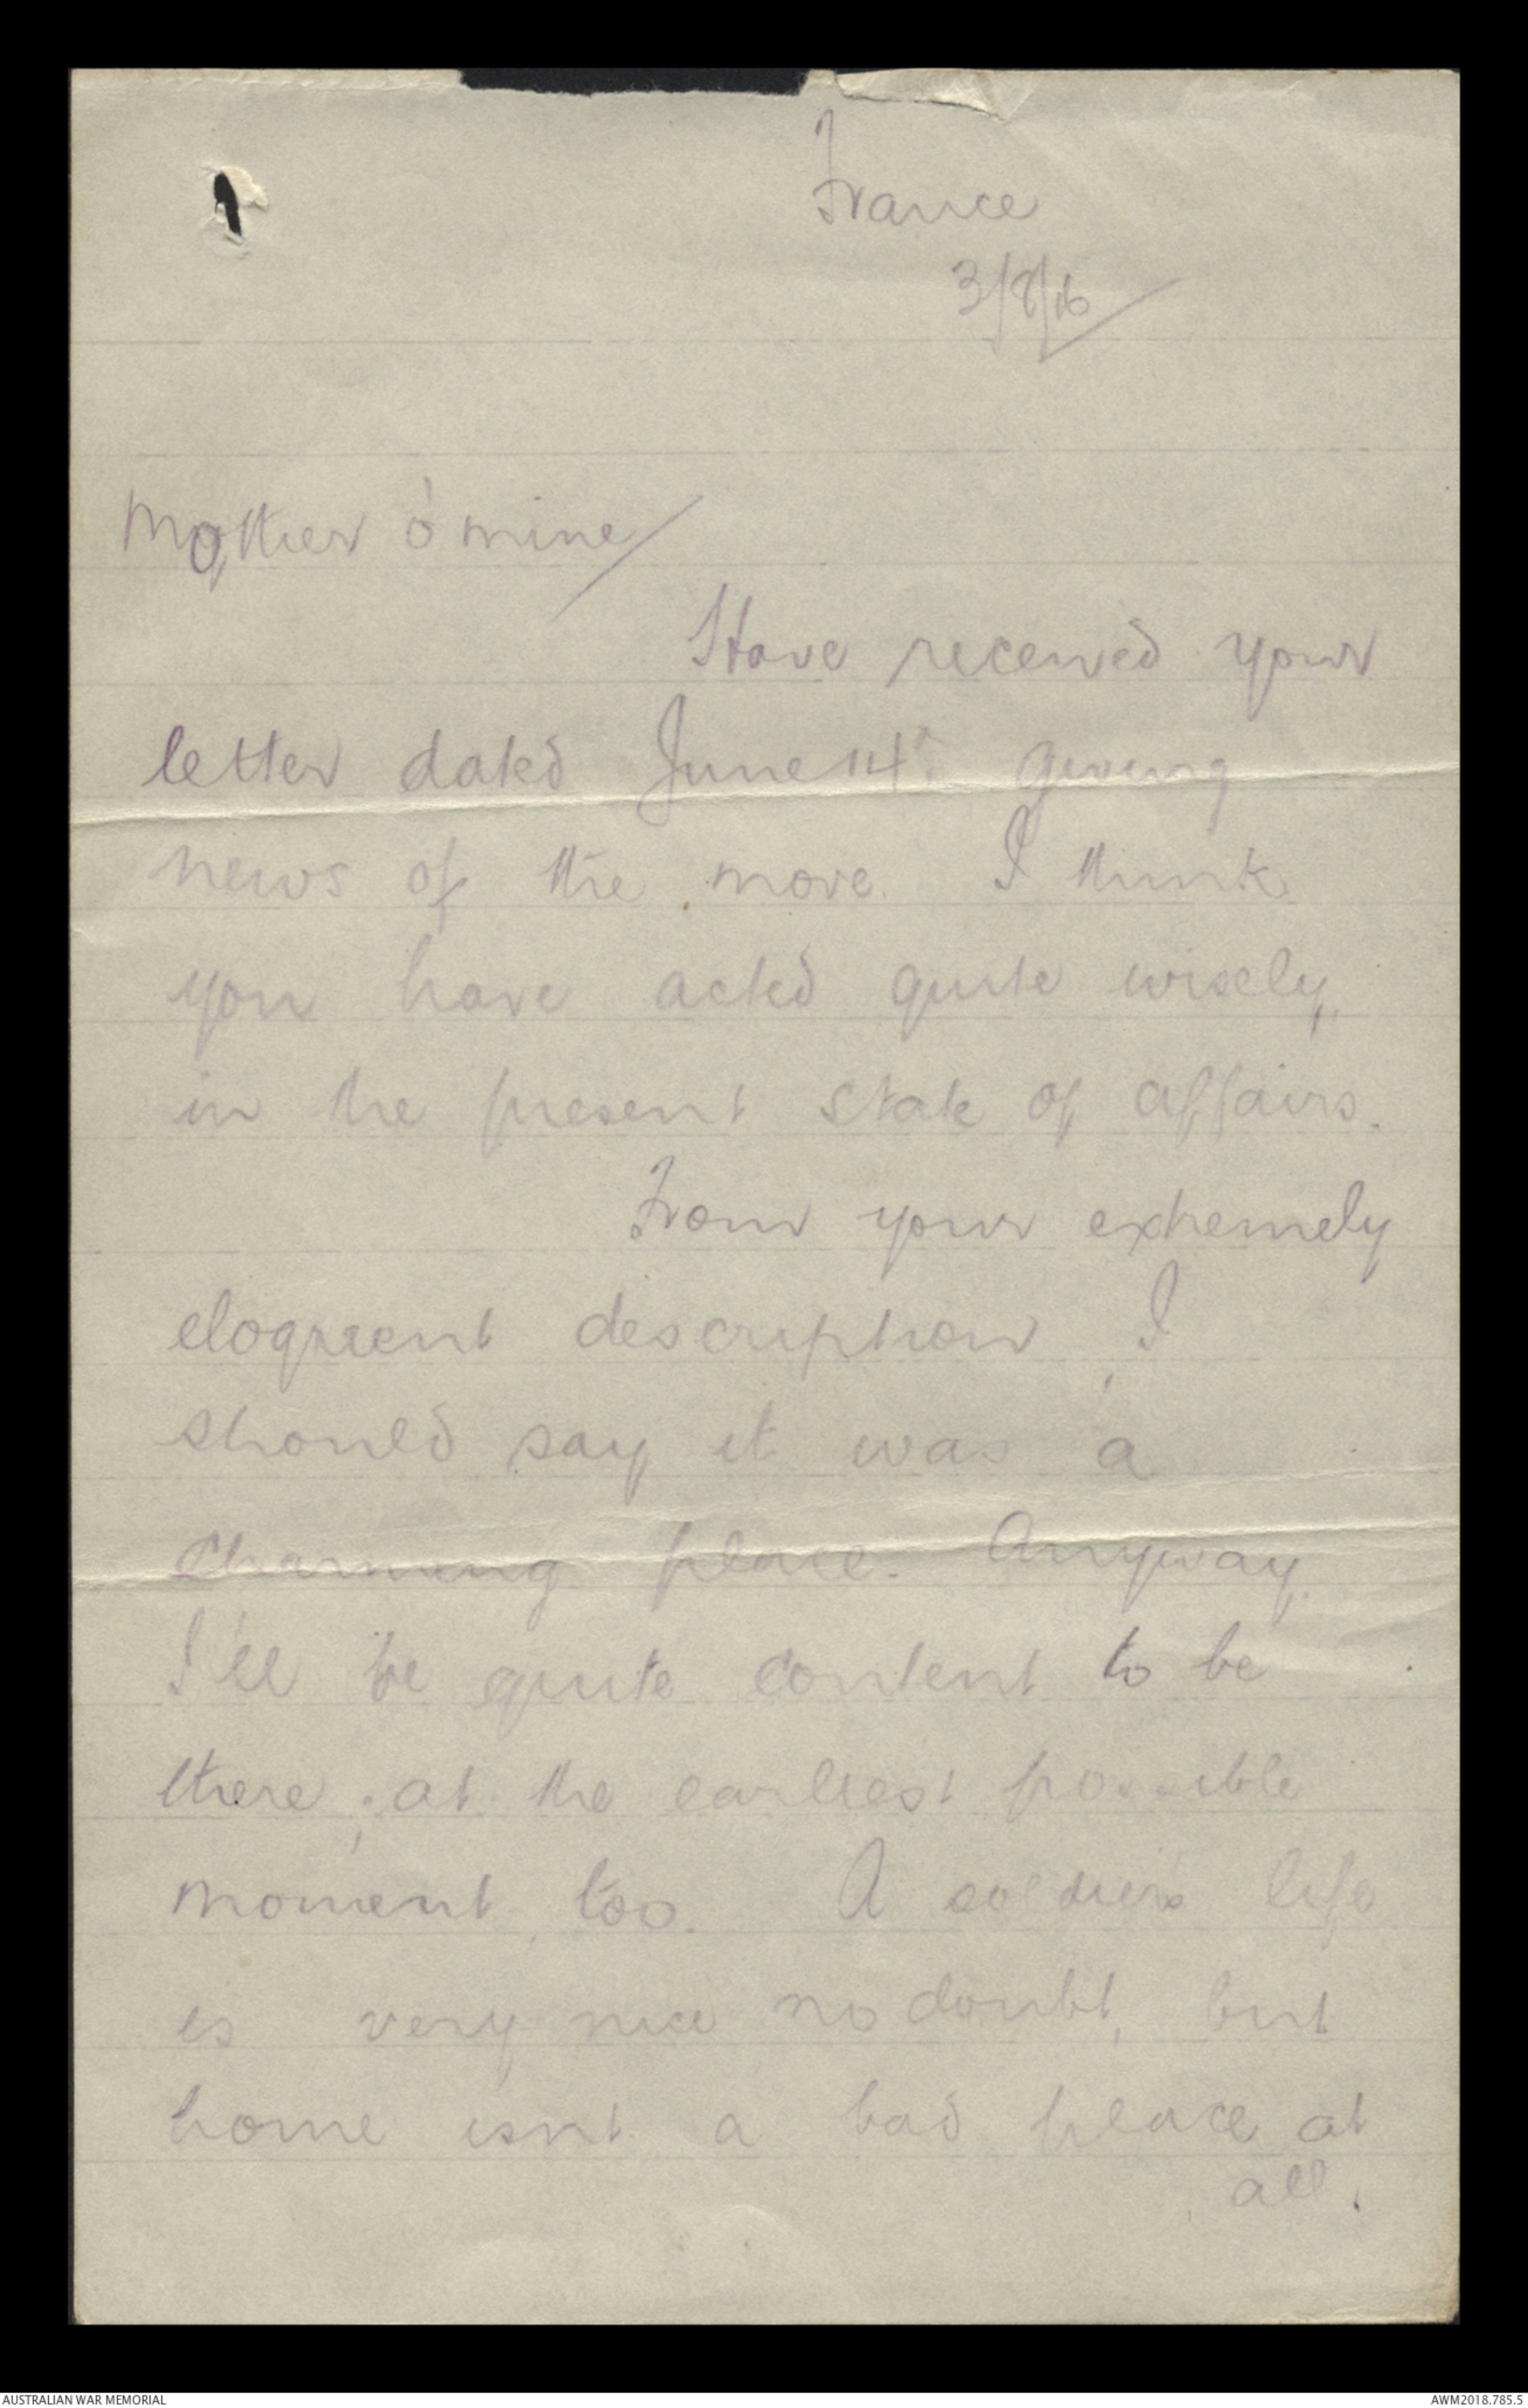 France
3/8/16
Mother o' mine/
Have received your
letter dated June 14th. giving
news of the move. I think
you have acted quite wisely,
in the present state of affairs.
From your extremely
eloquent description, I
should say it was a
charming place. Anyway,
I'll be quite content to be
there, at the earliest possible
moment, too. A soldier's life
is very nice no doubt, but
home isnt a bad place at
all.
AUSTRALIAN WAR MEMORIAL
AWM2018.785.5